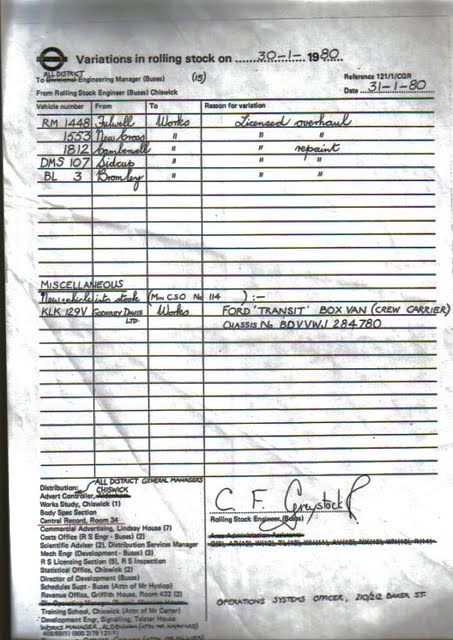 Variations in rolling stock on 30-1- 1980
ALL DISTRICT
To Divisional Engineering Manager (Buses) (15)
Reference 121/1/CGR
From Rolling Stock Engineer (Buses) Chiswick
Date 31-1-80
Vehicle number From To Reason for variation
RM 1448 Fulwell Works Licensed overhaul
1553 New Cross " " "
1812 Camberwell " " repaint
DMS 107 Sidcup " " "
BL 3 Bromley " " "
MISCELLANEOUS
New vehicle into stock (Min C.S.O No 114 ) :-
KLK 129V GODFREY DAVIS LTD. Works FORD 'TRANSIT' BOX VAN (CREW CARRIER)
CHASSIS No BDVVWJ 284780
Distribution: ALL DISTRICT GENERAL MANAGERS
CHISWICK
Advert Controller,
Works Study, Chiswick (1)
Body Spec Section
Central Record, Room 34
Commercial Advertising, Lindsay House (7)
Costs Office (R S Engr - Buses) (2)
Scientific Adviser (2), Distribution Services Manager
Mech Engr (Development - Buses) (2)
R S Licensing Section (5), R S Inspection
Statistical Office, Chiswick (2)
Director of Development
Schedules Supt - Buses (Attn of Mr Hyslop)
Revenue Office, Griffith House, Room 422 (2)
Training School, Chiswick (Attn of Mr Carter)
Development Engr, Signalling, Telstar House
WORKS MANAGER, ALDENHAM
C. F. Greystock
Rolling Stock Engineer (Buses)
Area Administration Assistants
OPERATIONS SYSTEMS OFFICER, 210/212 BAKER ST.